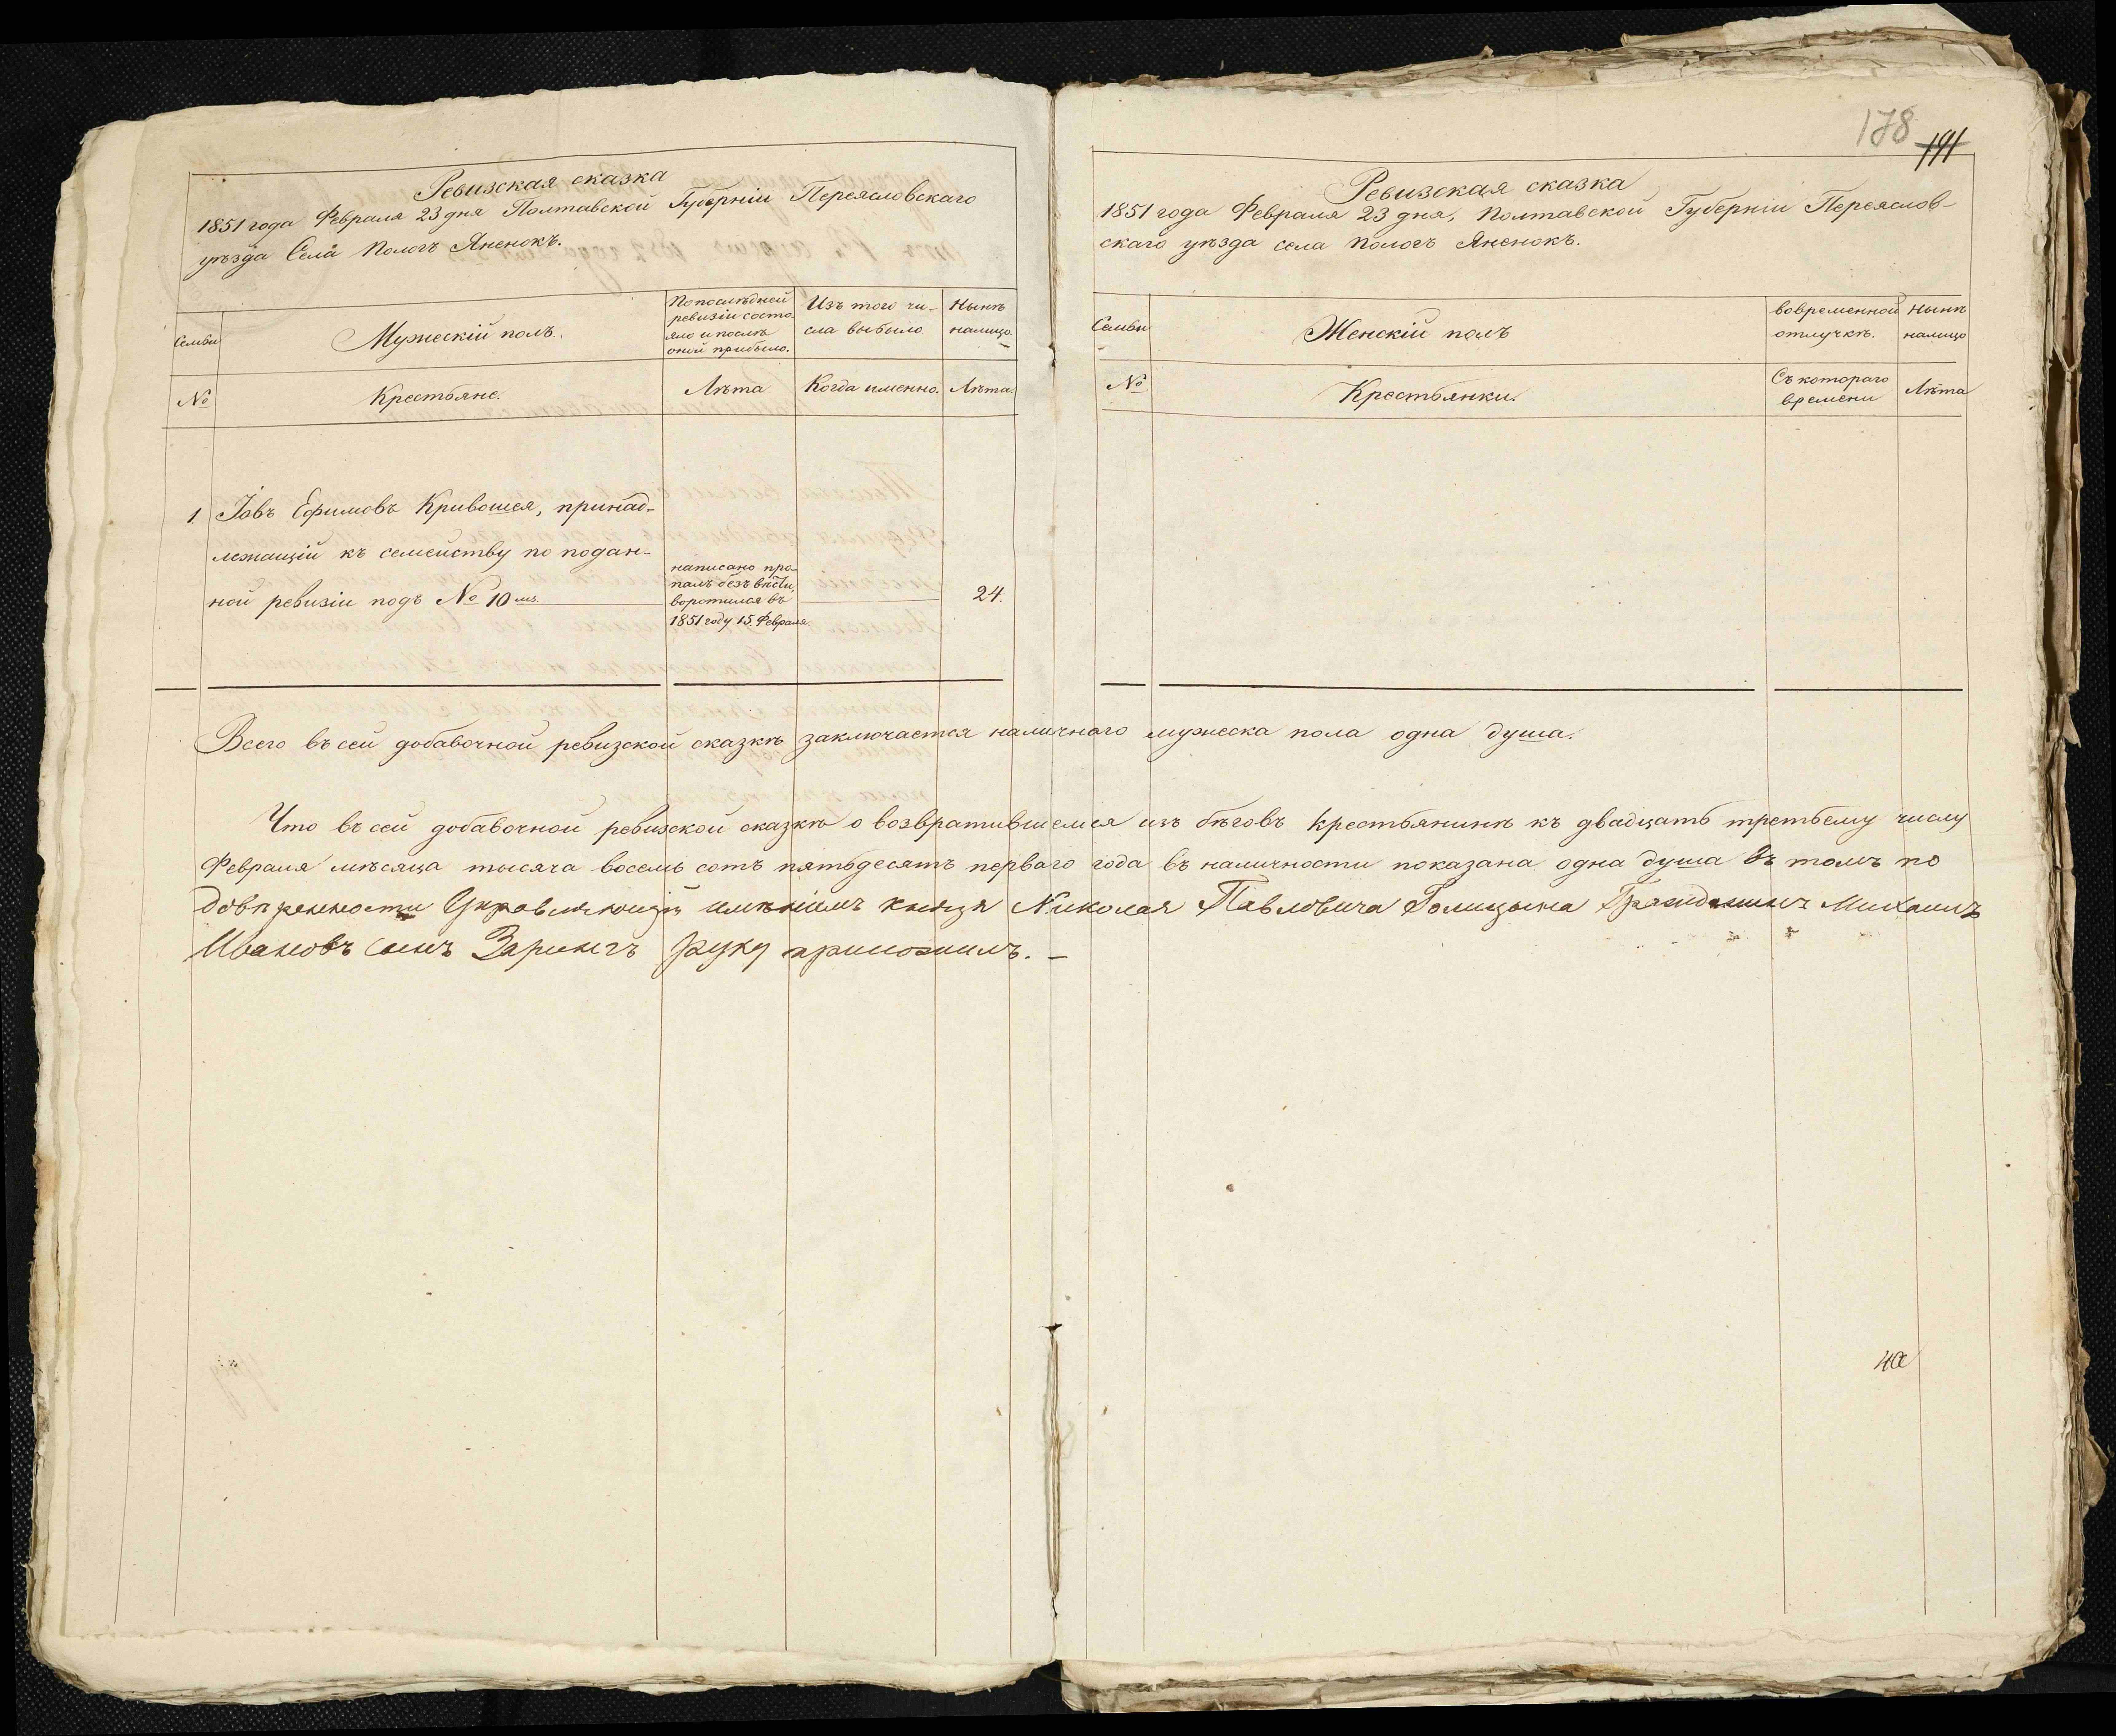 178
191
Ревизская сказка
1851 года Февраля 23 дня Полтавской Губерніи Переясловскаго
уѣзда Села Пологъ Яненокъ.
Семьи
Мужескій полъ.
По послѣдней
ревизіи состо-
яло и послѣ
оной прибыло.
Изъ того чи-
сла выбыло
Нынѣ
налицо
№
Крестьяне.
Лѣта
Когда именно.
Лѣта.
1. Іовъ Ефимовъ Кривошея, принад-
лежащій къ семейству по подан-
ной ревизіи подъ № 10 мъ.
написано про-
палъ безъ вѣсти,
воротился въ
1851 году 15. Февраля.
24.
Ревизская сказка
1851 года Февраля 23 дня, Полтавской Губерніи Переяслов-
скаго уѣзда села Пологъ Яненокъ.
Семьи
Женскій полъ
вовременной
отлучкѣ.
Нынѣ
налицо
№
Крестьянки.
Съ котораго
времени
Лѣта
Всего въ сей добавочной ревизской сказкѣ заключается наличнаго мужеска пола одна душа.
Что въ сей добавочной ревизской сказкѣ о возвратившемся изъ бѣговъ крестьянинѣ къ двадцать третьему числу
Февраля мѣсяца тысяча восемь сотъ пятьдесятъ перваго года въ наличности показана одна душа въ томъ по
довѣренности Управляющій имѣніемъ князя Николая Павловича Голицына Гражданинъ Михаилъ
Ивановъ сынъ Зарингъ руку приложилъ. —